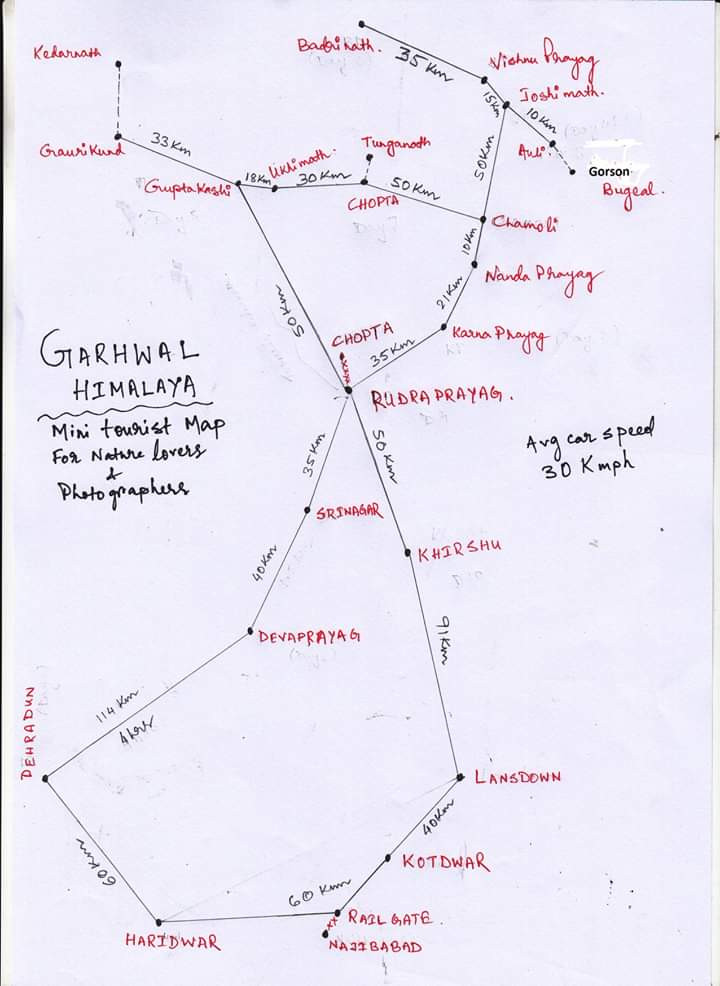 Kedarnath
Badrinath.
35 Km
Vishnu Prayag
15 Km
Joshimath.
10 Km
Auli
Gorson
Bugeal.
Gauri Kund
33 Km
Gupta Kashi
18 Km
Ukhimath.
30 Km
Tunganath
CHOPTA
50 Km
50 Km
Chamoli
10 Km
Nanda Prayag
21 Km
Karna Prayag
35 Km
50 Km
CHOPTA
RUDRAPRAYAG.
GARHWAL
HIMALAYA
Mini tourist Map
For Nature lovers
&
Photographers
Avg car speed
30 Kmph
35 Km
50 Km
SRINAGAR
KHIRSHU
40 Km
DEVAPRAYAG
91 Km
114 Km
4 hrs
DEHRADUN
LANSDOWN
40 Km
KOTDWAR
60 Km
60 Km
HARIDWAR
RAIL GATE.
NAJIBABAD